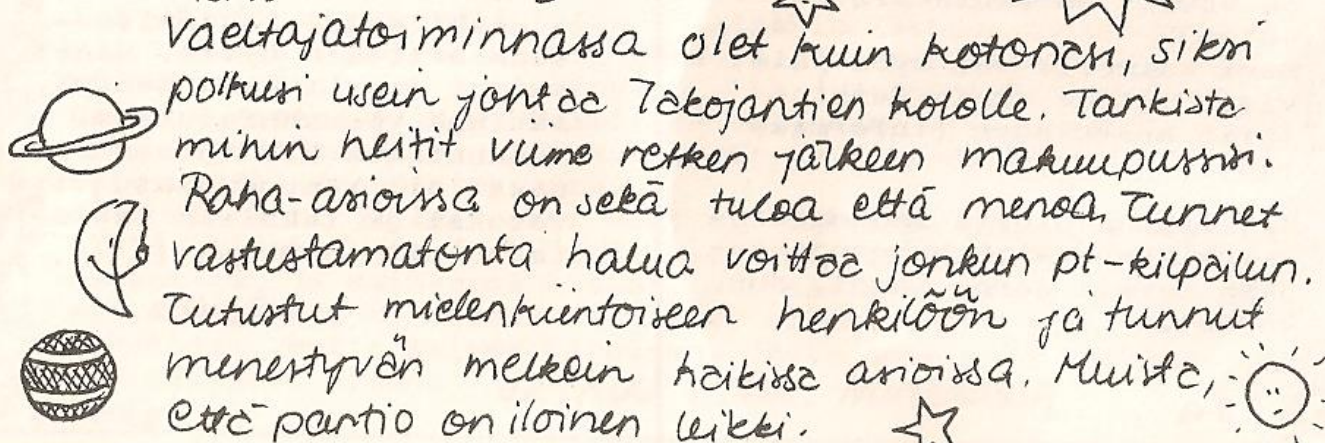 vaeltajatoiminnassa olet kuin kotonasi, siksi
polkusi usein johtaa Takojantien kololle. Tarkista
mihin heitit viime retken jälkeen makuupussisi.
Raha-asioissa on sekä tuloa että menoa. Tunnet
vastustamatonta halua voittaa jonkun pt-kilpailun.
Tutustut mielenkiintoiseen henkilöön ja tunnut
menestyvän melkein kaikissa asioissa. Muista,
että partio on iloinen leikki.